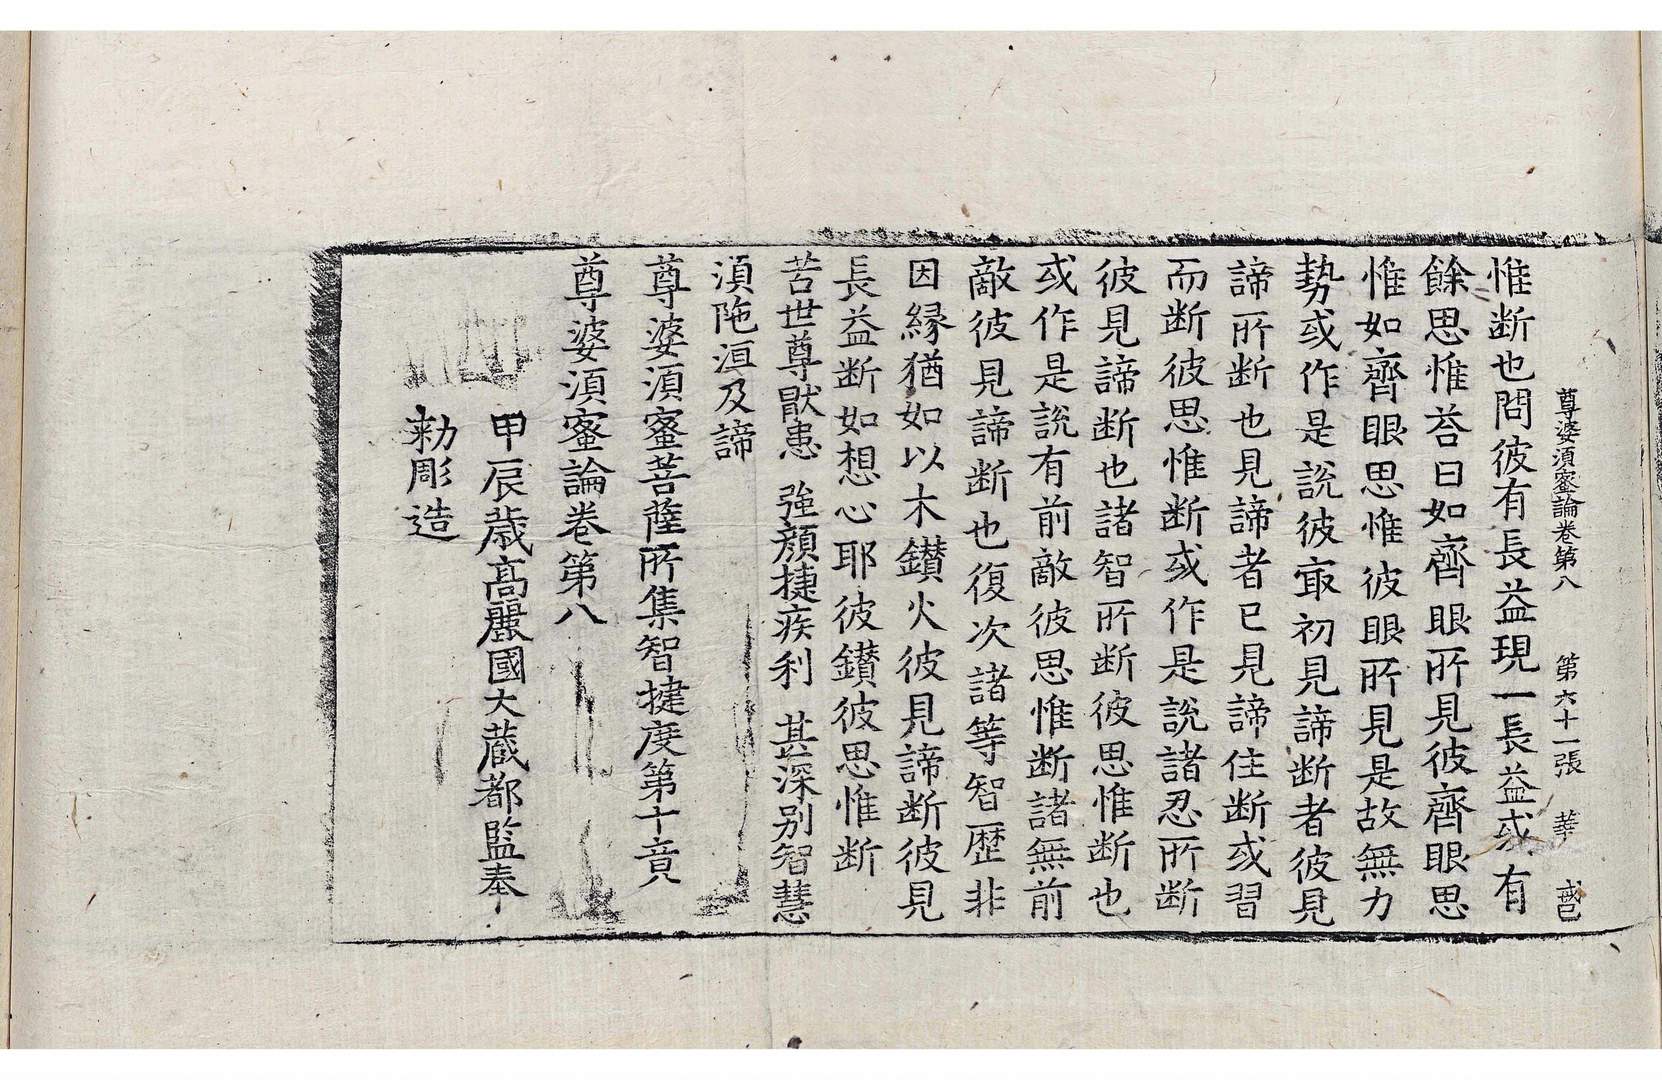 尊婆湏蜜論卷第八 第六十一張 華
惟断也問彼有長益現一長益或有
餘思惟荅曰如齊眼所見彼齊眼思
惟如齊眼思惟彼眼所見是故無力
勢或作是說彼㝡初見諦断者彼見
諦所断也見諦者已見諦住断或習
而断彼思惟断或作是說諸忍所断
彼見諦断也諸智所断彼思惟断也
或作是說有前敵彼思惟断諸無前
敵彼見諦断也復次諸等智歷非
因緣猶如以木鑚火彼見諦断彼見
長益断如想心耶彼鑚彼思惟断
苦世尊猒患 強顏捷疾利 甚深別智慧
湏陁洹及諦
尊婆湏蜜菩薩所集智揵度第十竟
尊婆湏蜜論卷第八
甲辰歲高麗國大藏都監奉
勑彫造